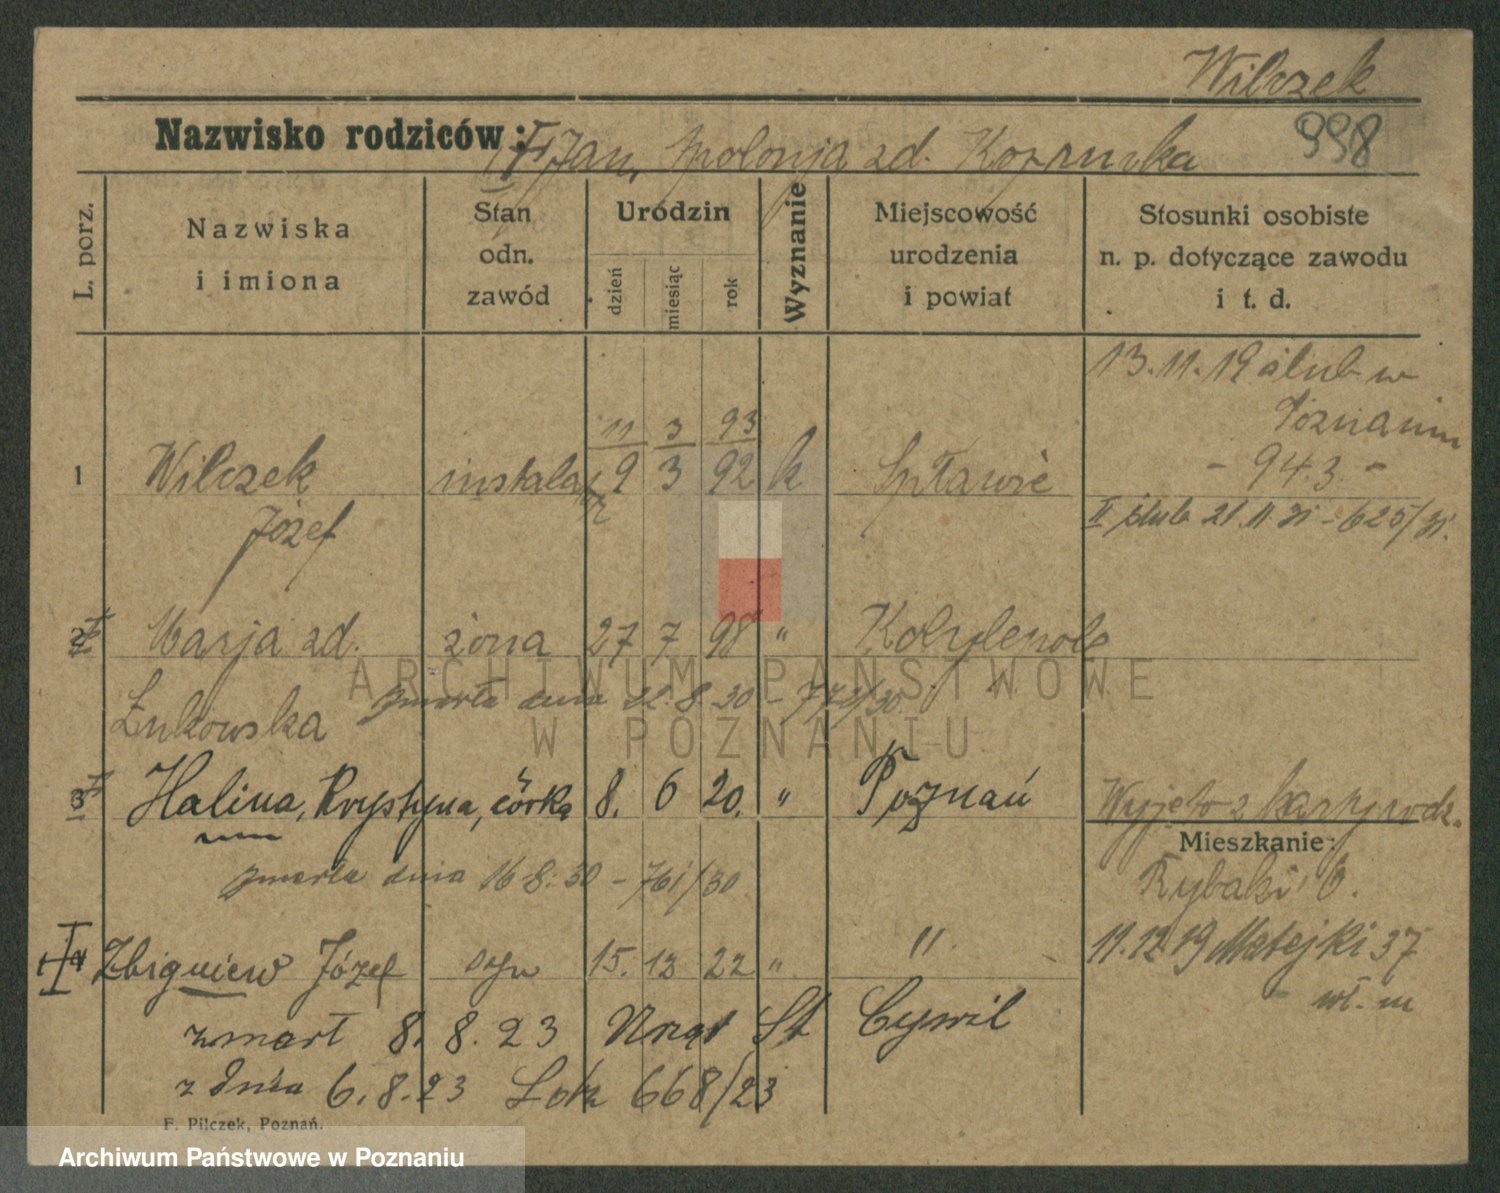 Wilczek
Nazwisko rodziców: Jan, Apolonja zd. 998
L. porz.
Nazwiska i imiona
Stan odn. zawód
Urodzin
dzień miesiąc rok
Wyznanie
Miejscowość urodzenia i powiat
Stosunki osobiste n. p. dotyczące zawodu i t. d.
13.11.19 ślub w
Poznaniu
11 3 93
1 Wilczek instala 9 3 92 k Spławie - 943 -
Józef
II ślub 21.11.31 - 625/31.
2 Marja zd. żona 27 7 98 "
Żukowska zmarła dnia 8.30
3 Halina, Krystyna, córka 8. 6 20. " Poznań
Wyjęto z
Mieszkanie:
zmarła dnia 16.8.30 - 761/30
Rybaki 6.
4 Zbigniew Józef syn 15. 12 22 " "
11.12.19 Matejki 37
wł. m
zmarł 8. 8. 23 Urząd St Cywil
z dnia 6. 8. 23 668/23
F. Pilczek, Poznań.
ARCHIWUM PAŃSTWOWE
W POZNANIU
Archiwum Państwowe w Poznaniu